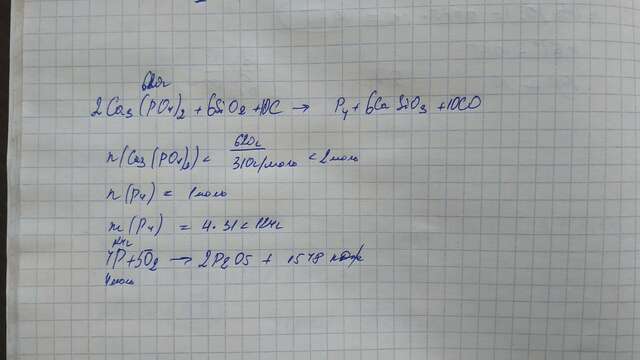 620г
2Ca3(PO4)2 + 6SiO2 + 10C → P4 + 6CaSiO3 + 10CO
n(Ca3(PO4)2) = 620г / 310г/моль = 2моль
n(P4) = 1моль
m(P4) = 4·31 = 124г
124г
4P + 5O2 → 2P2O5 + 1548 кдж
4моль